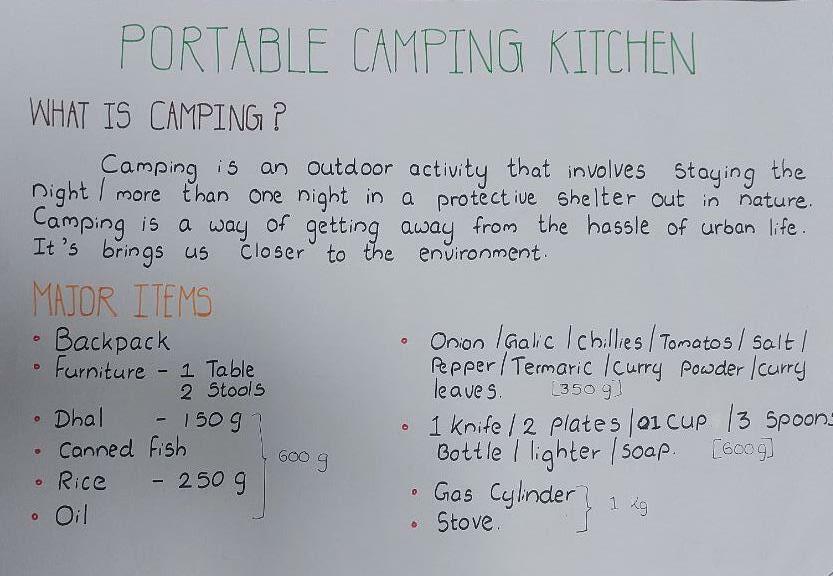 PORTABLE CAMPING KITCHEN
WHAT IS CAMPING?
Camping is an outdoor activity that involves staying the
night / more than one night in a protective shelter out in nature.
Camping is a way of getting away from the hassle of urban life.
It's brings us closer to the environment.
MAJOR ITEMS
• Backpack
• Furniture - 1 Table
2 Stools
• Dhal - 150 g
• Canned fish
• Rice - 250 g
• Oil
600 g
• Onion / Galic / chillies / Tomatos / salt /
Pepper / Termaric / curry powder / curry
leaves. [350 g]
• 1 knife / 2 plates / 01 cup / 3 spoons
Bottle / lighter / soap. [600g]
• Gas Cylinder
• Stove.
1 kg